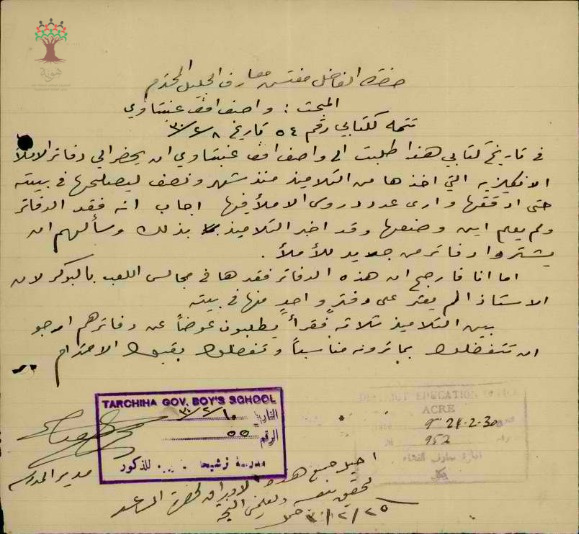 حضرة الفاضل مفتش معارف الجليل المحترم
المبحث : واصف افندي عنبتاوي
تتمه لكتابي رقم ٥٤ تاريخ ٣٠/٢/٨
في تاريخ كتابي هذا طلبت الى واصف افندي عنبتاوي ان يحضر الي دفاتر الاملأ
الانكليزيه التي اخذها من التلاميذ منذ شهر ونصف ليصلحها في بيته
حتى ادققها وارى عدد دروس الاملأ فيها اجاب انه فقد الدفاتر
ولم يعلم اين وضعها وقد اخبر التلاميذ بذلك وسألهم ان
يشتروا دفاتر من جديد للأملأ .
اما انا فارجح ان هذه الدفاتر فقدها في مجالس اللعب بالبوكر لان
الاستاذ لم يعثر على دفتر واحد منها في بيته
بين التلاميذ ثلاثه فقرأ يطلبون عوضاً عن دفاترهم ارجو
ان تتفضلوا بما ترونه مناسباً وتفضلوا بقبول الاحترام
TARCHIHA GOV. BOY'S SCHOOL
التاريخ ٣٠/٢/١٠
الرقم ٥٥
مدرسة ترشيحا للذكور
مدير المدرسه
DISTRICT EDUCATION OFFICE
ACRE
24-2-30
952
احيل جميع هذه الاوراق لحضرة المساعد